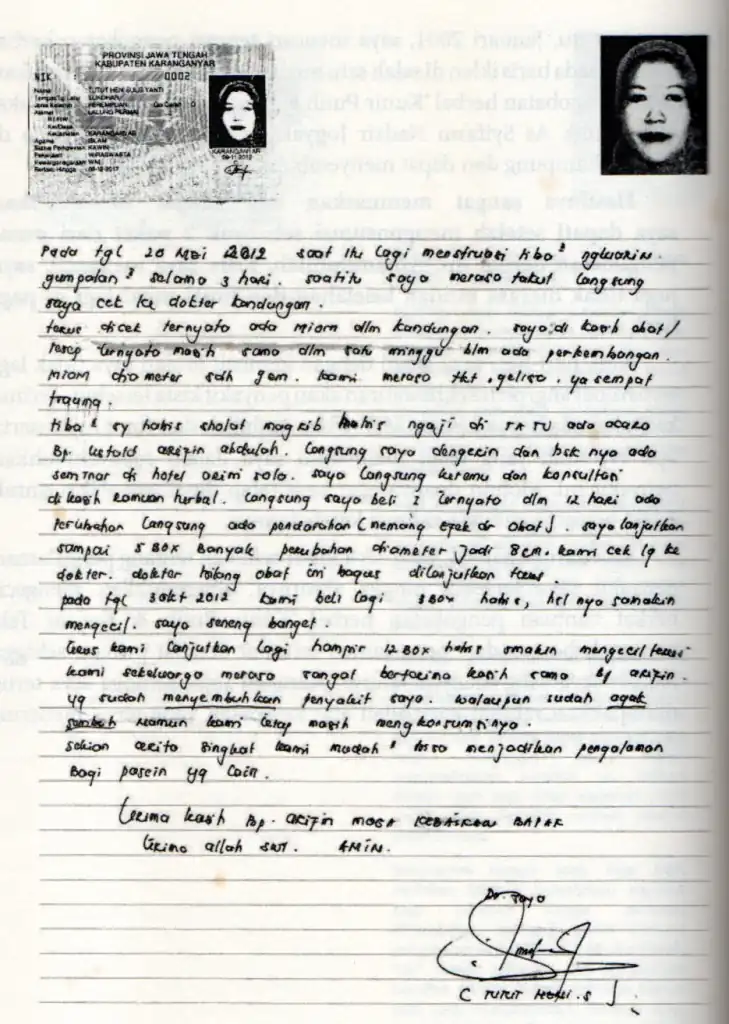 PROVINSI JAWA TENGAH
KABUPATEN KARANGANYAR
NIK : 0002
Nama : TUTUT HENI SULIS YANTI
Jenis Kelamin PEREMPUAN Gol Darah : O
Alamat
RT/RW
Kel/Desa
Kecamatan KARANGANYAR
Agama ISLAM
Status Perkawinan KAWIN
Pekerjaan WIRASWASTA
Kewarganegaraan WNI
Berlaku Hingga 09-12-2017
KARANGANYAR
09-11-2012
Pada tgl 20 Mei 2012 saat itu lagi menstruasi tiba² ngluarin
gumpalan² selama 3 hari. saat itu saya merasa takut langsung
saya cek ke dokter kandungan.
terus dicek ternyata ada miom dlm kandungan. saya di kasih obat/
resep ternyata masih sama dlm satu minggu blm ada perkembangan.
miom diameter sdh 9cm. kami merasa tkt, gelisa, ya sempat
trauma.
tiba² sy habis sholat magrib habis ngaji di TATV ada acara
Bp. Ustald arifin abdulah. langsung saya dengerin dan bsk nya ada
seminar di hotel arini solo. saya langsung ketemu dan konsultasi
di kasih ramuan herbal. langsung saya beli 2 ternyata dlm 12 hari ada
perubahan langsung ada pendarahan (memang efek dr obat). saya lanjutkan
sampai 5 BOX Banyak perubahan diameter jadi 8cm. kami cek lg ke
dokter. dokter bilang obat ini bagus dilanjutkan terus.
pada tgl 3 okt 2012 kami beli lagi 3 BOX habis, hsl nya semakin
mengecil. saya seneng banget.
terus kami lanjutkan lagi hampir 12 BOX habis smakin mengecil terus
kami sekeluarga merasa sangat berterima kasih sama Bp arifin.
yg sudah menyembuhkan penyakit saya. walaupun sudah agak
sembuh namun kami tetap masih mengkonsumsinya.
sekian cerita singkat kami mudah² bisa menjadikan pengalaman
Bagi pasein yg lain.
terima kasih Bp. arifin moga KEBAIKAN BAPAK
terima allah swt. AMIN.
Dr. saya
( TUTUT HENI.S )